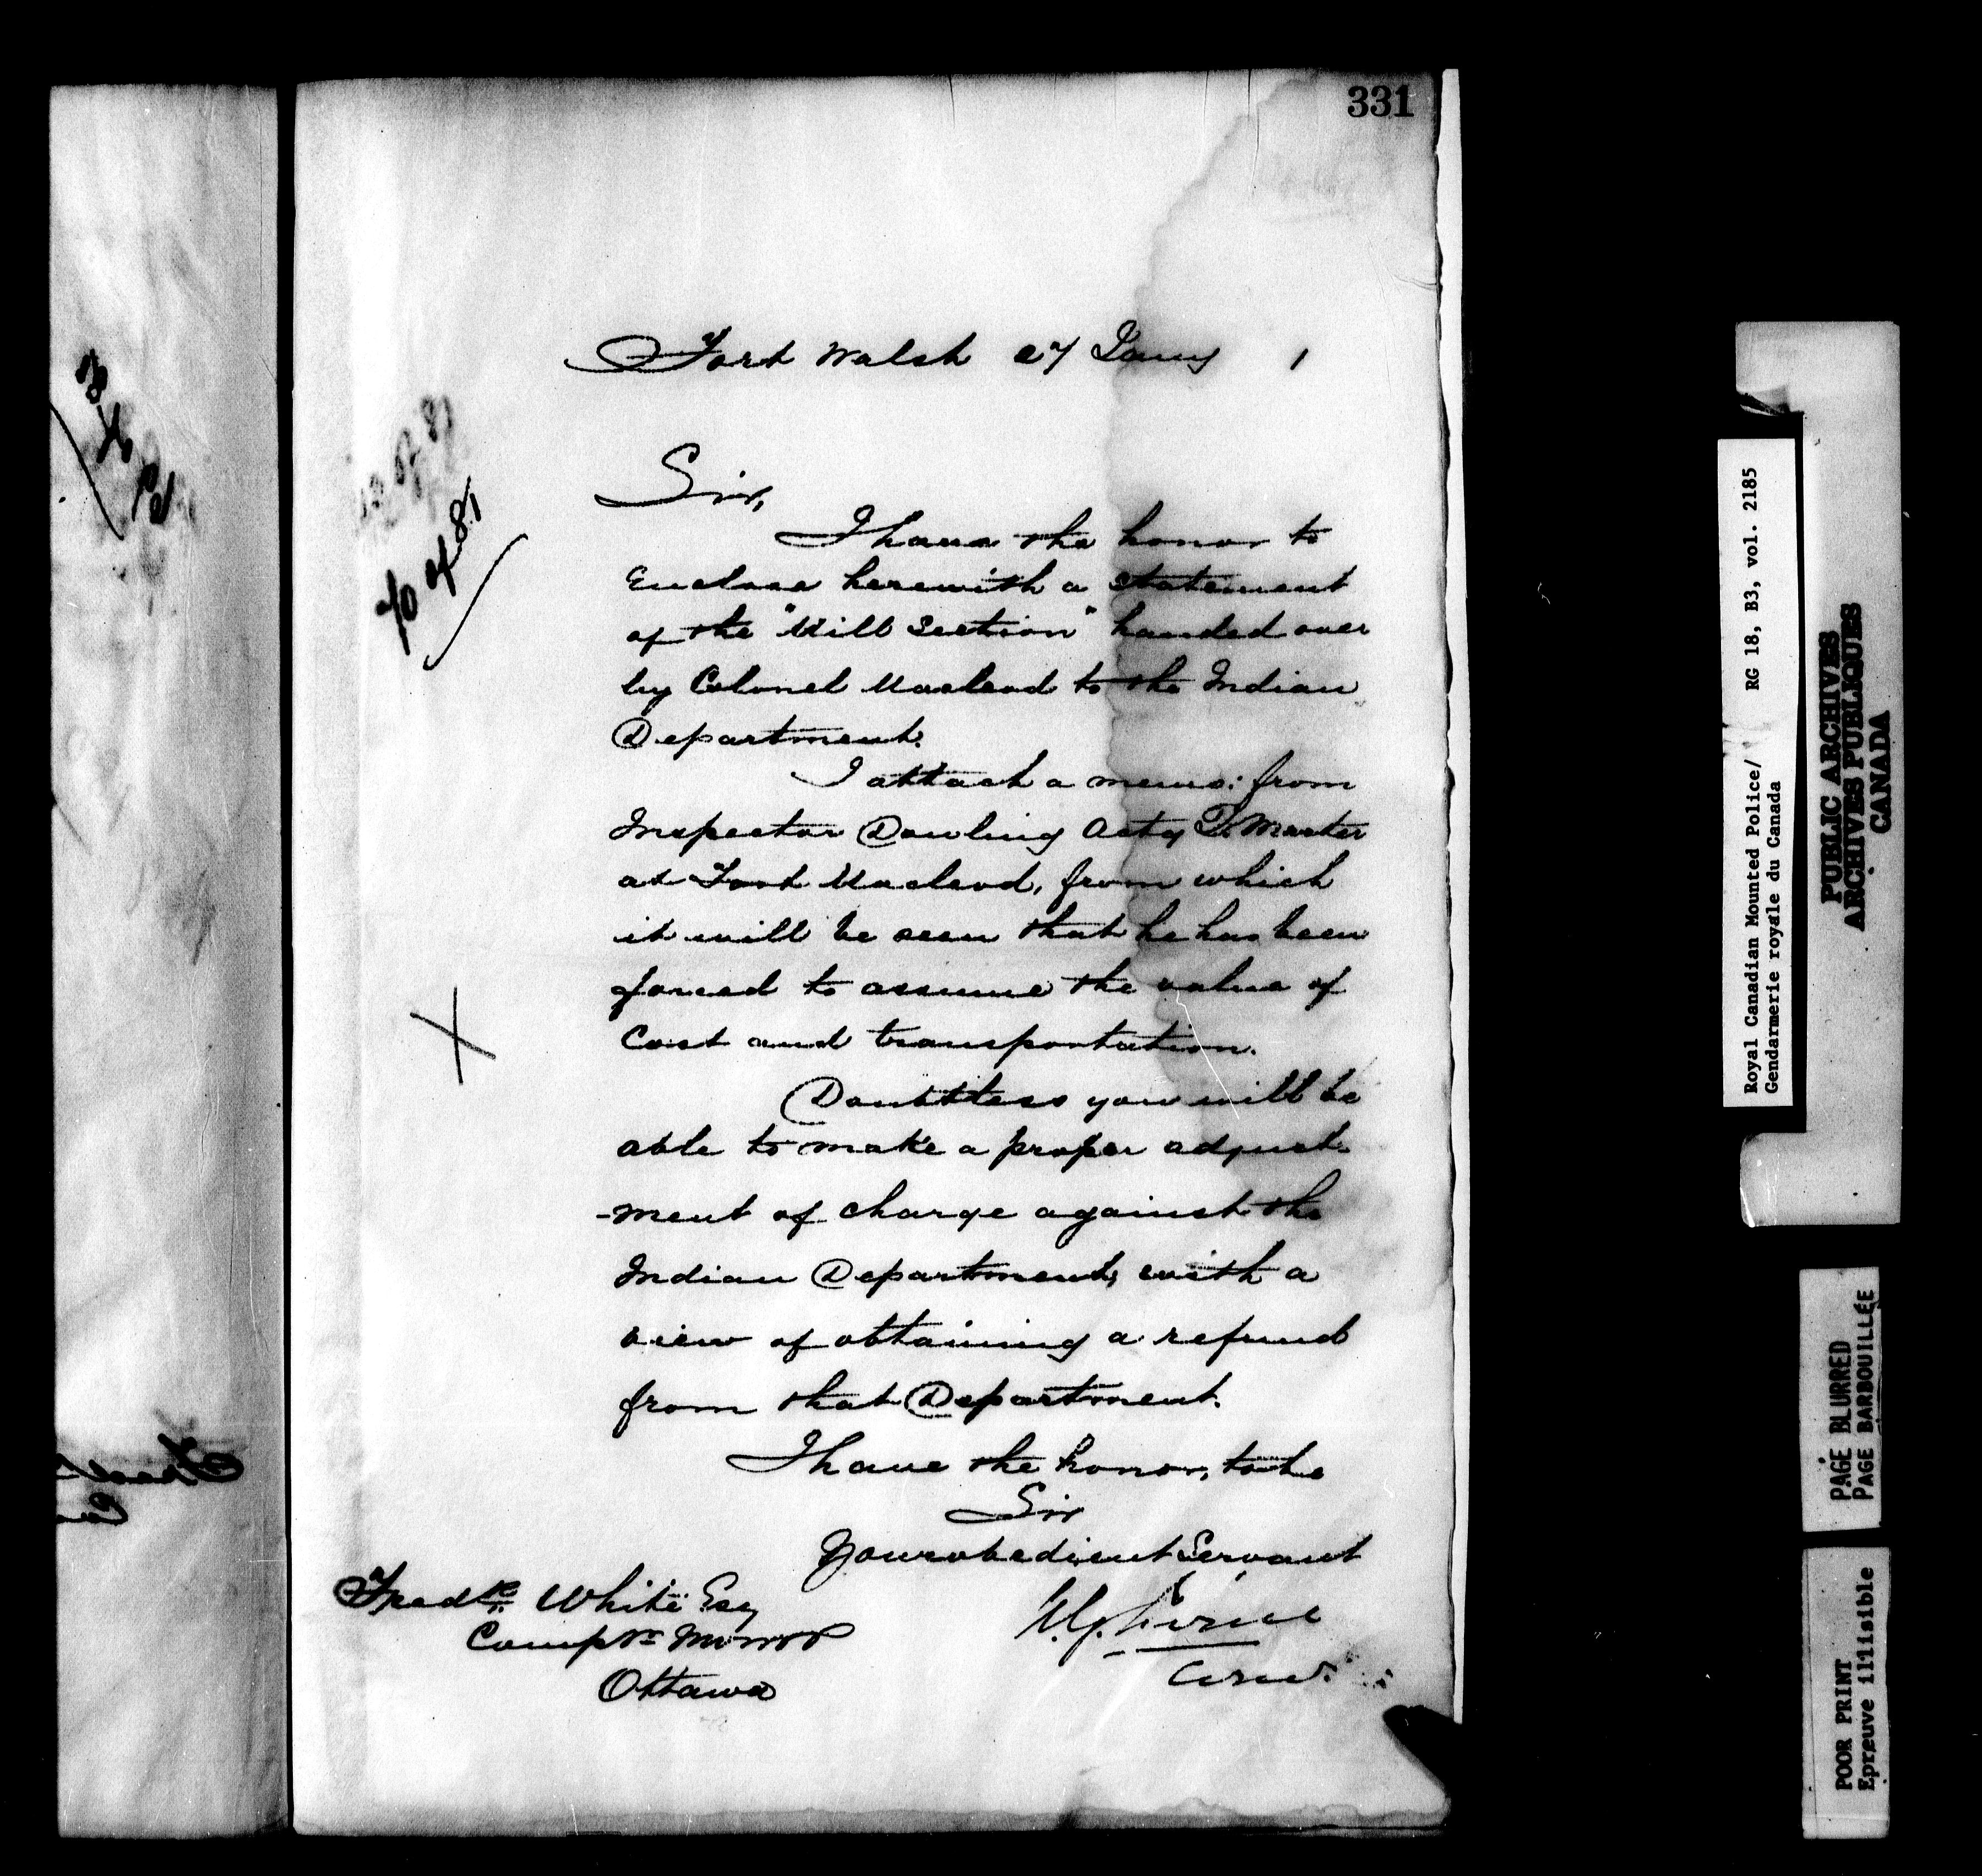 331
Fort Walsh 27 Jany 1
10 of 81
Sir,
I have the honor to
Enclose herewith a statement
of the "Mill Section" handed over
by Colonel Macleod to the Indian
Department.
I attach a memo: from
Inspector Dowling Actg Q. Master
at Fort Macleod, from which
it will be seen that he has been
forced to assume the value of
Cost and transportation.
Doubtless you will be
able to make a proper adjust-
-ment of charge against the
Indian Department, with a
view of obtaining a refund
from that Department.
I have the honor, to be
Sir
Your obedient Servant
Fredk White Esq
Comptr
Ottawa
Royal Canadian Mounted Police/ RG 18, B3, vol. 2185
Gendarmerie royale du Canada
PUBLIC ARCHIVES
ARCHIVES PUBLIQUES
CANADA
PAGE BLURRED
PAGE BARBOUILLÉE
POOR PRINT
Epreuve illisible